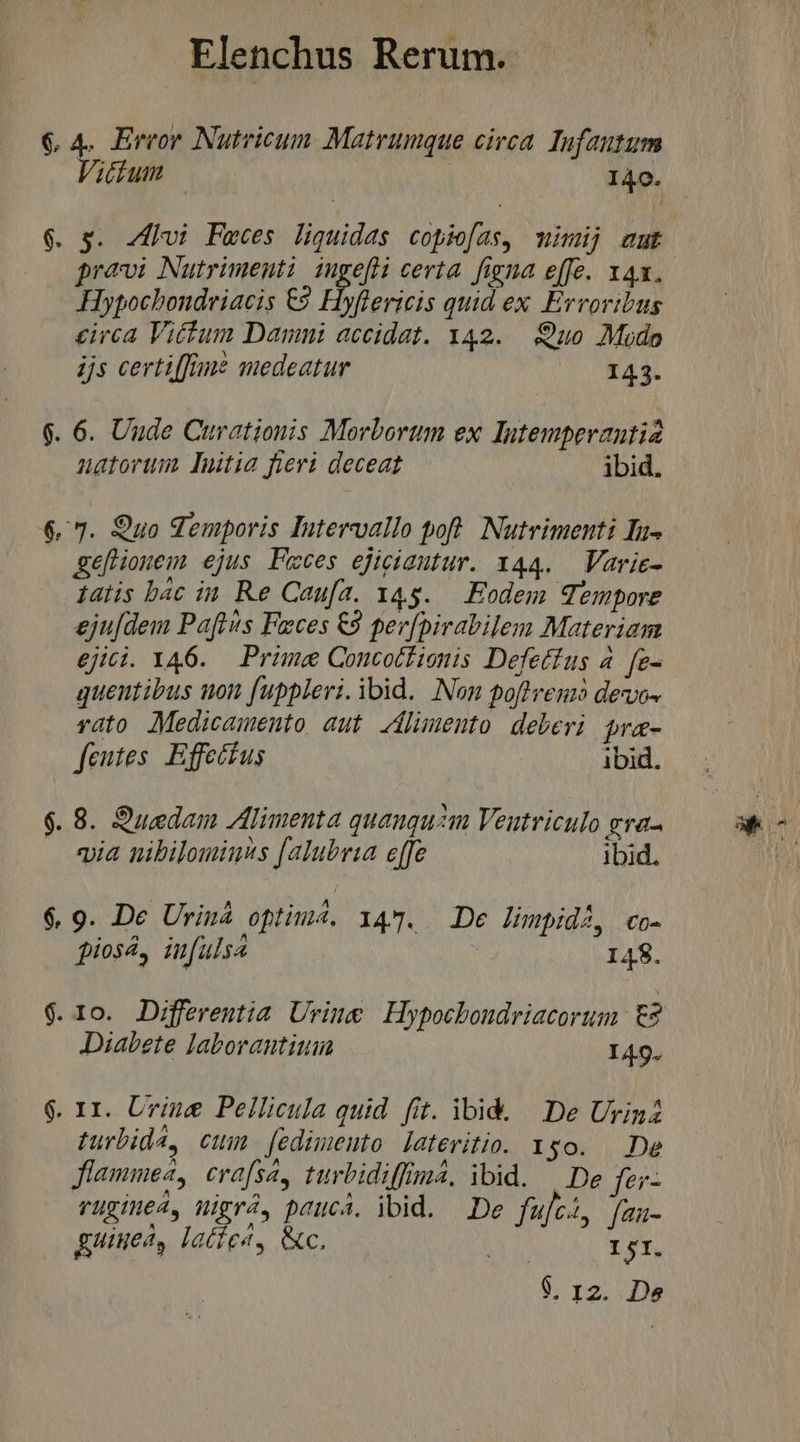 Elenchus Rerum.
§. 4. Error Nutricum Matrumque circa Infantum
Victum 140.
§. 5. Alvi Fæces liquidas copiosas, nimij aut
pravi Nutrimenti ingesti certa signa esse. 141.
Hypochondriacis & Hystericis quid ex Erroribus
circa Victum Damni accidat. 142. Quo Modo
ijs certissimè medeatur 143.
§. 6. Unde Curationis Morborum ex Intemperantiâ
natorum Initia fieri deceat ibid.
§. 7. Quo Temporis Intervallo post Nutrimenti In-
gestionem ejus Fæces ejiciantur. 144. Varie-
tatis hâc in Re Causa. 145. Eodem Tempore
ejusdem Pastûs Fæces & perspirabilem Materiam
ejici. 146. Primæ Concoctionis Defectus à se-
quentibus non suppleri. ibid. Non postremò devo-
rato Medicamento aut Alimento deberi præ-
sentes Effectus ibid.
§. 8. Quædam Alimenta quanquàm Ventriculo gra-
via nihilominùs salubria esse ibid.
§. 9. De Urinâ optimâ. 147. De limpidâ, co-
piosâ, insulsâ 148.
§. 10. Differentia Urinæ Hypochondriacorum &
Diabete laborantium 149.
§. 11. Urinæ Pellicula quid sit. ibid. De Urinâ
turbidâ, cum sedimento lateritio. 150. De
flammeâ, crassâ, turbidissimâ. ibid. De fer-
rugineâ, nigrâ, paucâ. ibid. De fuscâ, san-
guineâ, lacteâ, &c. 151.
§. 12. De